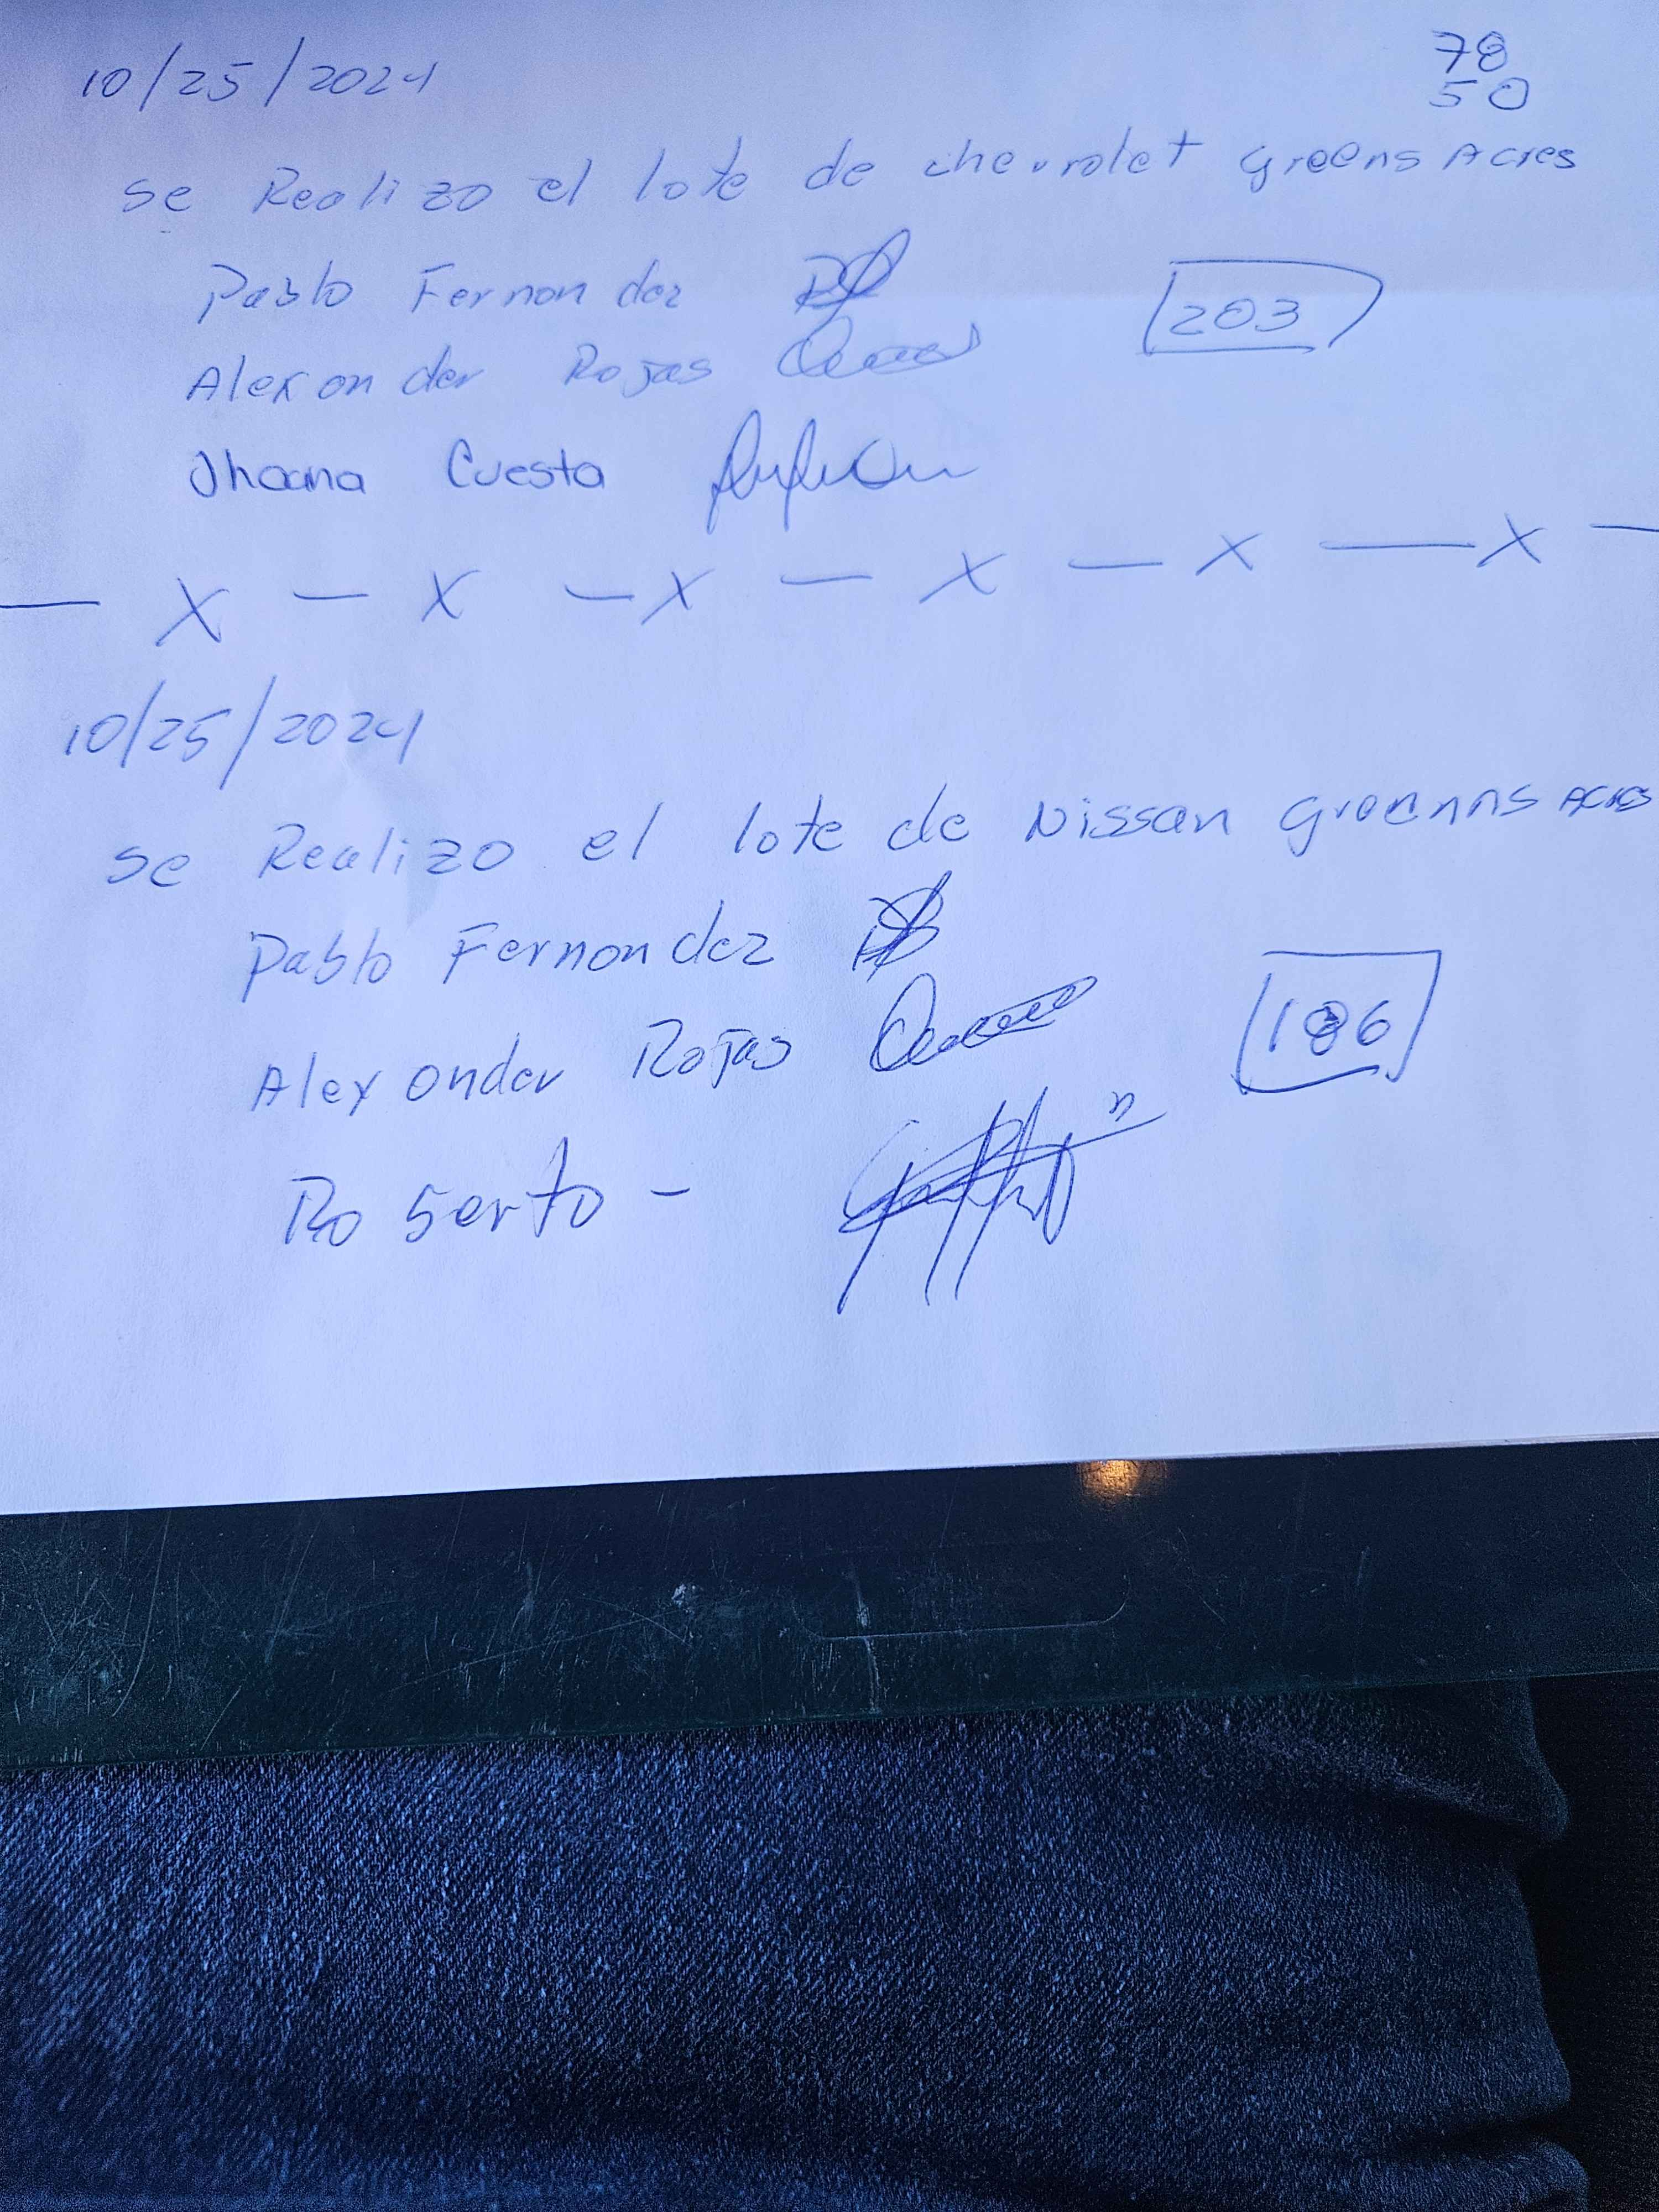 10/25/2024
78
50
se Realizo el lote de chevrolet greens Acres
Pablo Fernandez
203
Alexander Rojas
Jhoana Cuesta
— X — X — X — X — X — X —
10/25/2024
se Realizo el lote de Nissan greennns Acres
Pablo Fernandez
186
Alexander Rojas
Roberto -